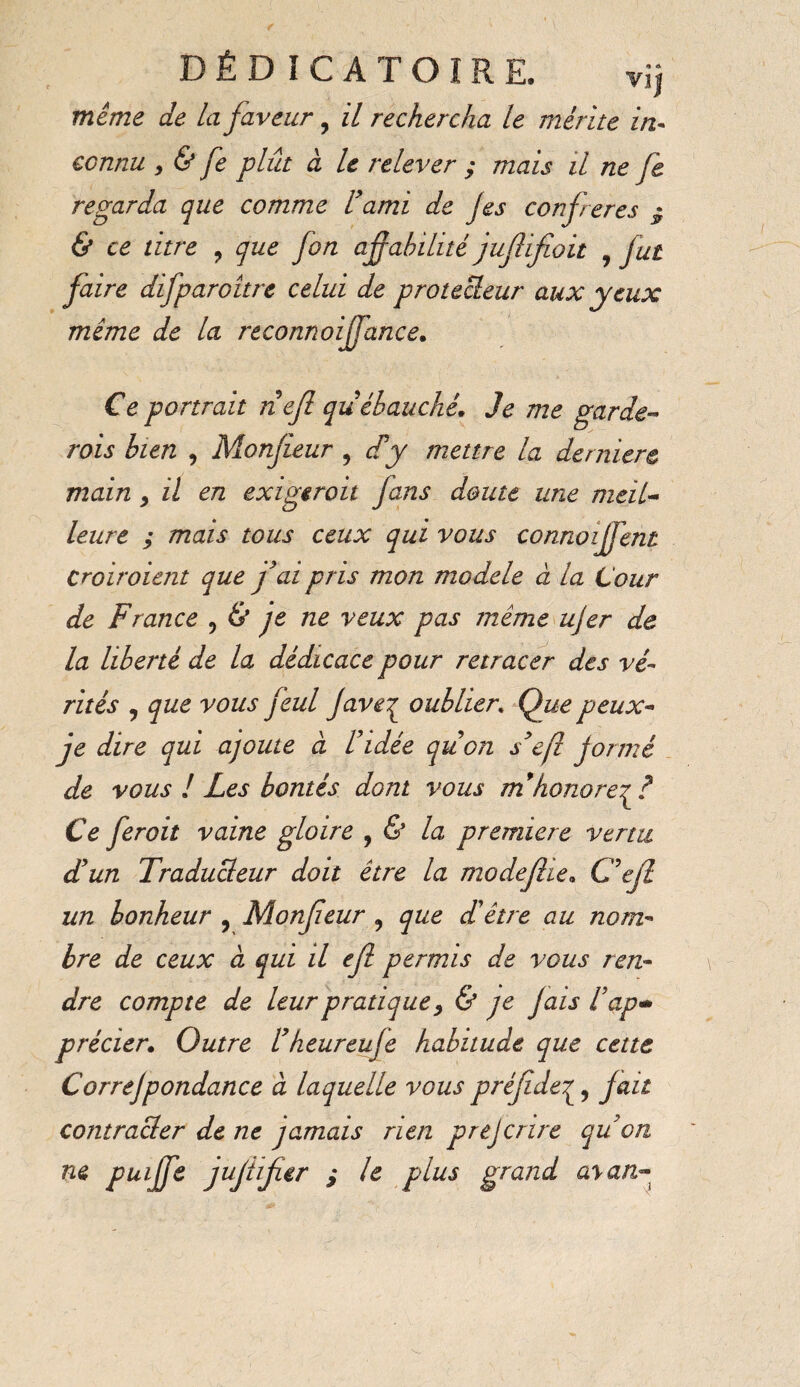 DÉDICATOIRE. vij
même de la faveur, il rechercha le mérite in-
connu, & ſe plût à le relever ; mais il ne ſe
regarda que comme l'ami de ſes confreres ;
& ce titre, que ſon affabilité juſtifioit, fut
faire diſparoître celui de protecteur aux yeux
même de la reconnoiſſance.
Ce portrait n'eſt qu'ébauché. Je me garde-
rois bien, Monſieur, d'y mettre la derniere
main, il en exigeroit ſans doute une meil-
leure ; mais tous ceux qui vous connoiſſent
croiroient que j'ai pris mon modele à la Cour
de France, & je ne veux pas même uſer de
la liberté de la dédicace pour retracer des vé-
rités, que vous ſeul ſavez oublier. Que peux-
je dire qui ajoute à l'idée qu'on s'eſt formé
de vous ! Les bontés dont vous m'honorez ?
Ce ſeroit vaine gloire, & la premiere vertu
d'un Traducteur doit être la modeſtie. C'eſt
un bonheur, Monſieur, que d'être au nom-
bre de ceux à qui il eſt permis de vous ren-
dre compte de leur pratique, & je ſais l'ap-
précier. Outre l'heureuſe habitude que cette
Correſpondance à laquelle vous préſidez, fait
contracter de ne jamais rien preſcrire qu'on
ne puiſſe juſtifier ; le plus grand avan-